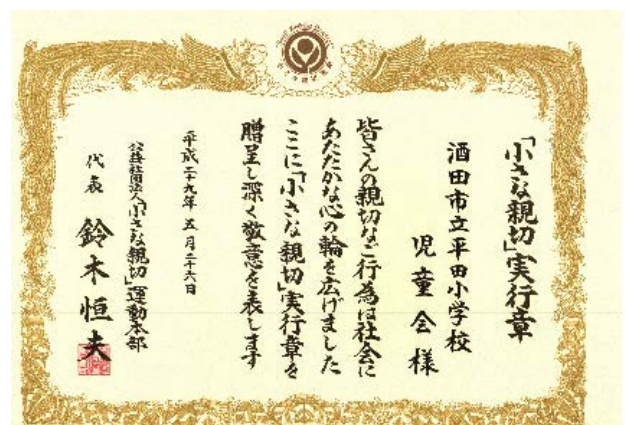 「小さな親切」実行章
酒田市立平田小学校
児童会様
皆さんの親切なご行為は社会に
あたたかな心の輪を広げました
ここに「小さな親切」実行章を
贈呈し深く敬意を表します
平成二十九年五月二十六日
公益社団法人「小さな親切」運動本部
代表 鈴木恒夫